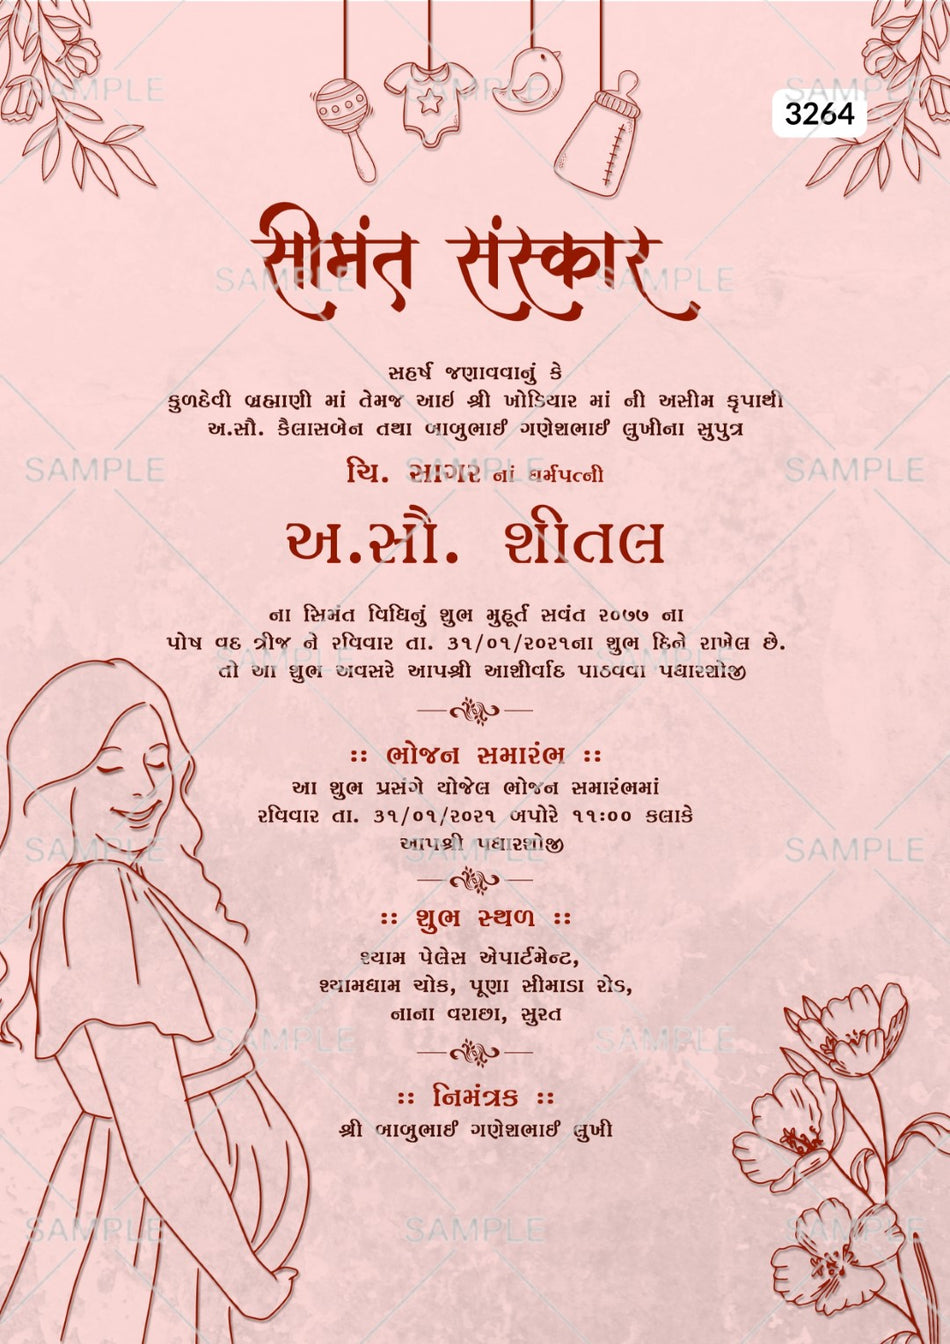 3264
सीमंत संस्कार
સહર્ષ જણાવવાનું કે
કુળદેવી બ્રહ્માણી માં તેમજ આઇ શ્રી ખોડિયાર માં ની અસીમ કૃપાથી
અ.સૌ. કૈલાસબેન તથા બાબુભાઈ ગણેશભાઈ લુખીના સુપુત્ર
ચિ. સાગર નાં ધર્મપત્ની
અ.સૌ. શીતલ
ના સિમંત વિધિનું શુભ મુહૂર્ત સવંત ૨૦૭૭ ના
પોષ વદ ત્રીજ ને રવિવાર તા. ૩૧/૦૧/૨૦૨૧ના શુભ દિને રાખેલ છે.
તો આ શુભ અવસરે આપશ્રી આશીર્વાદ પાઠવવા પધારશોજી
:: ભોજન સમારંભ ::
આ શુભ પ્રસંગે યોજેલ ભોજન સમારંભમાં
રવિવાર તા. ૩૧/૦૧/૨૦૨૧ બપોરે ૧૧:૦૦ કલાકે
આપશ્રી પધારશોજી
:: શુભ સ્થળ ::
શ્યામ પેલેસ એપાર્ટમેન્ટ,
શ્યામધામ ચોક, પૂણા સીમાડા રોડ,
નાના વરાછા, સુરત
:: નિમંત્રક ::
શ્રી બાબુભાઈ ગણેશભાઈ લુખી
SAMPLE SAMPLE SAMPLE
SAMPLE SAMPLE
SAMPLE SAMPLE SAMPLE
SAMPLE SAMPLE
SAMPLE SAMPLE SAMPLE
SAMPLE SAMPLE
SAMPLE SAMPLE SAMPLE